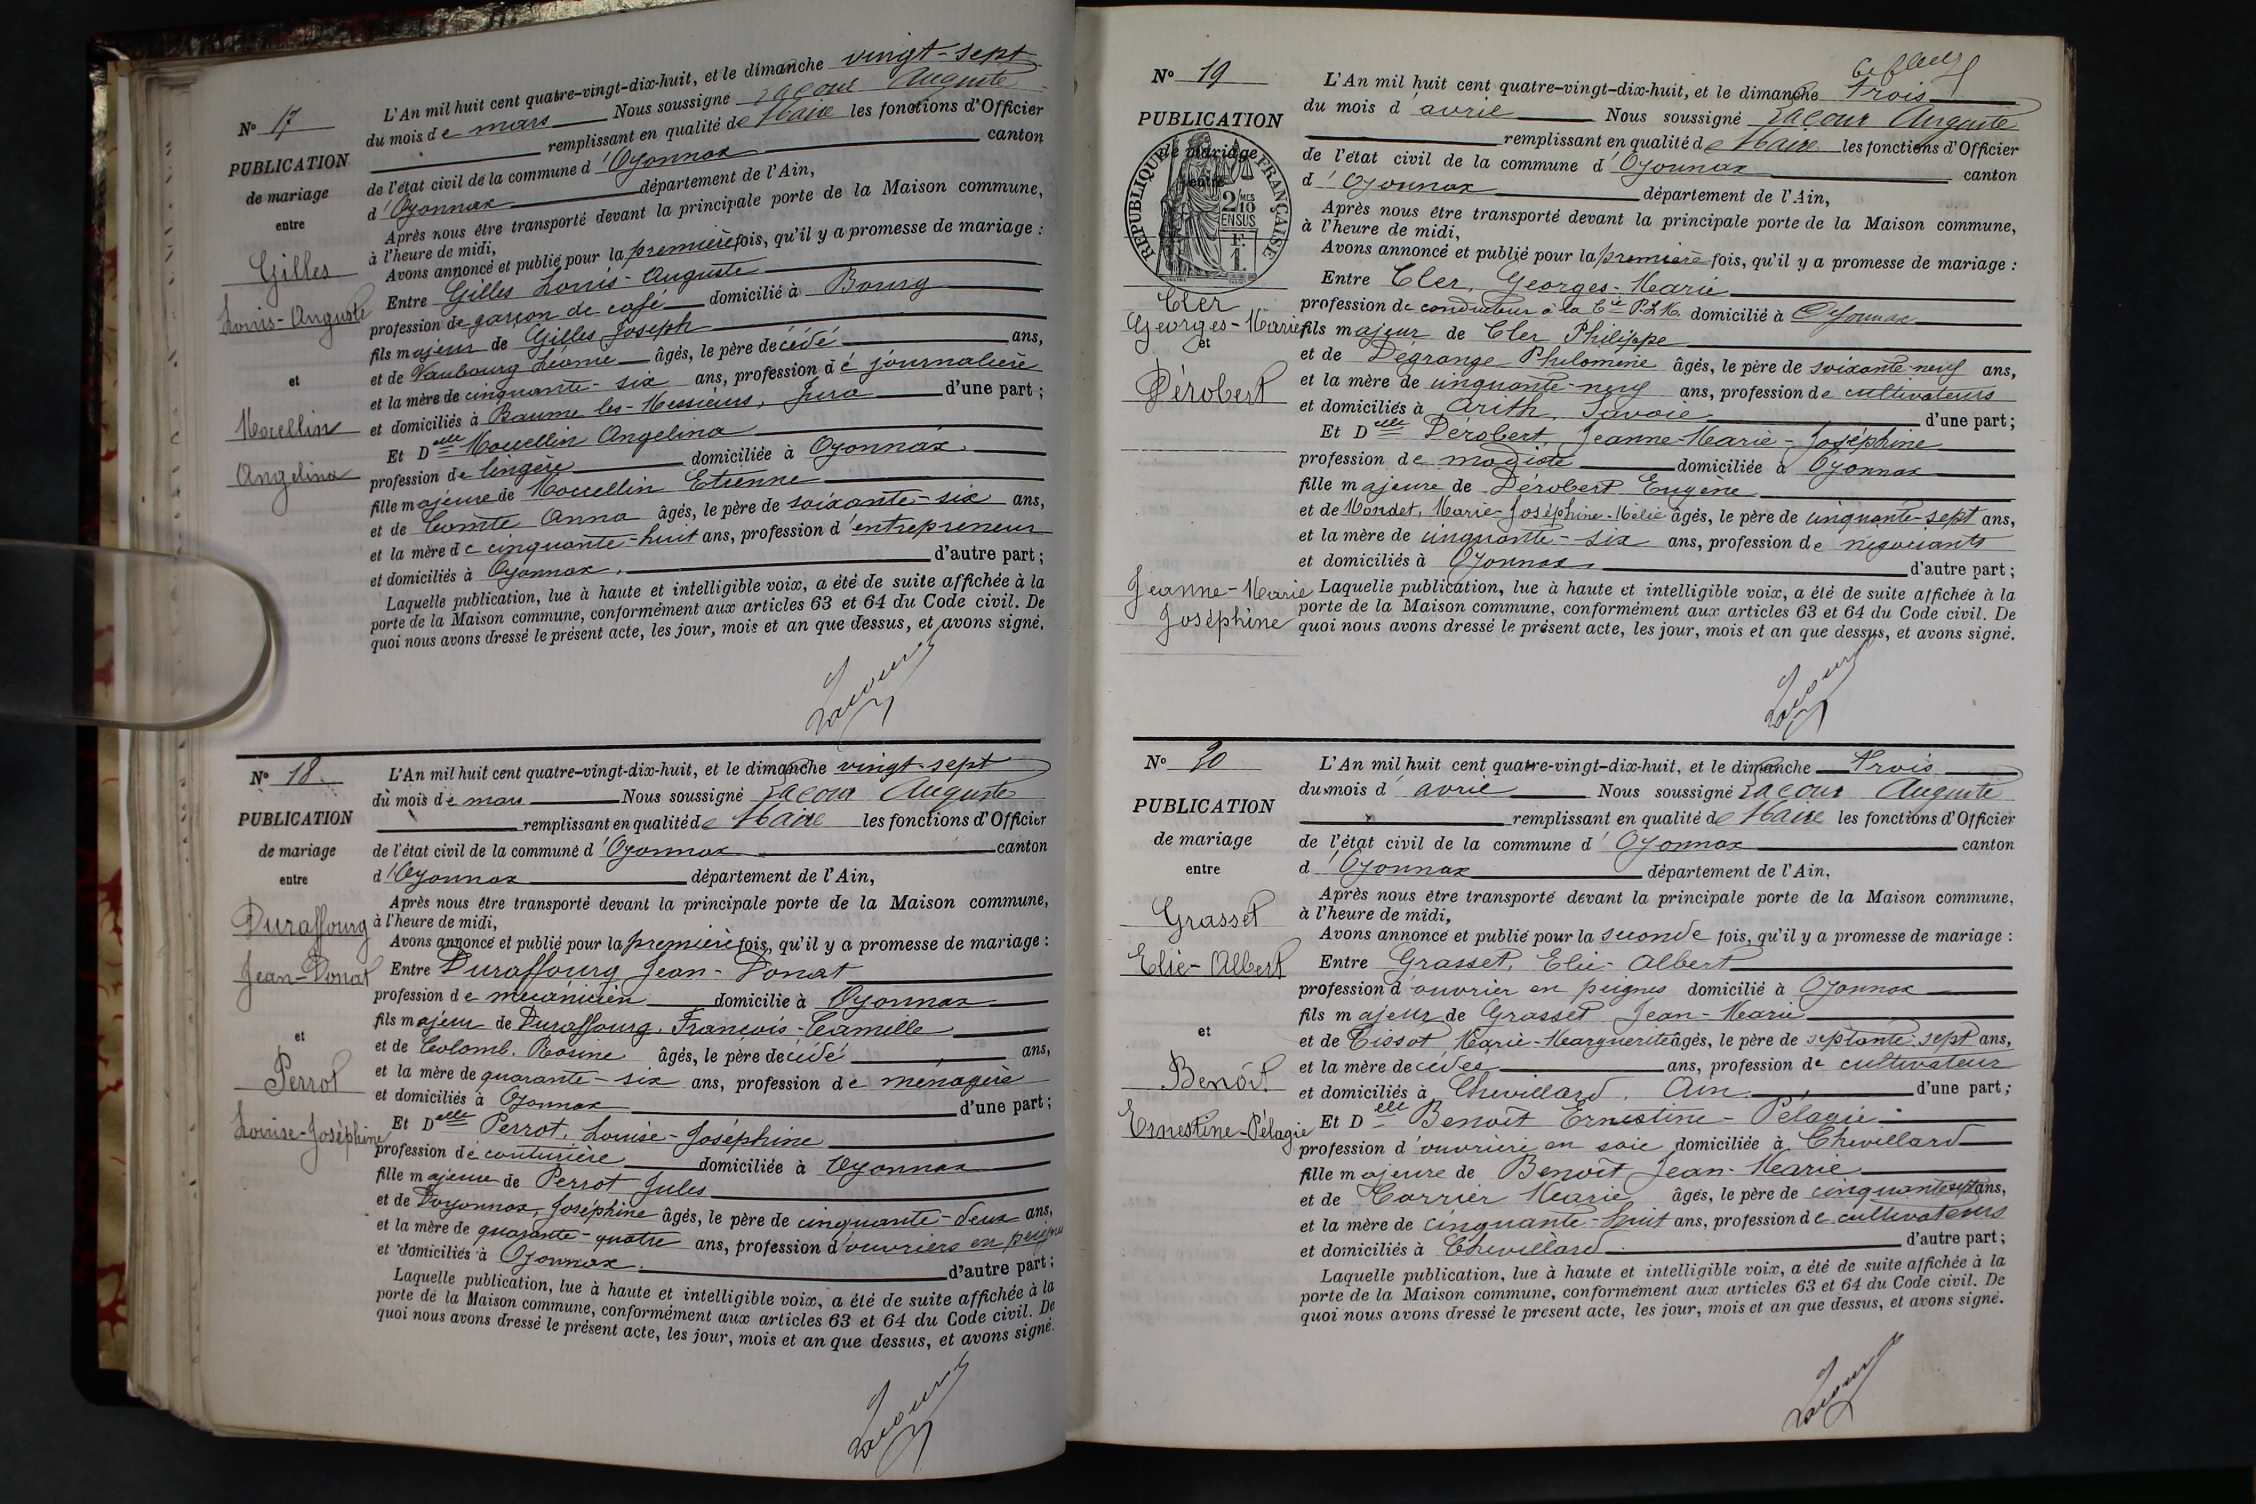 N° 17
PUBLICATION
de mariage
entre
Gilles
Louis-Auguste
et
Angelina
L'An mil huit cent quatre-vingt-dix-huit, et le dimanche vingt-sept
du mois de mars Nous soussigné Lacour Auguste
remplissant en qualité de Maire les fonctions d'Officier
de l'état civil de la commune d'Oyonnax canton
d'Oyonnax département de l'Ain,
Après nous être transporté devant la principale porte de la Maison commune,
à l'heure de midi,
Avons annoncé et publié pour la première fois, qu'il y a promesse de mariage :
Entre Gilles Louis-Auguste
profession de garçon de café domicilié à Bourg
fils majeur de Gilles Joseph
et de Vaubourg Léonie âgés, le père décédé ans,
et la mère de cinquante-six ans, profession de journalière
et domiciliés à Baume-les-Messieurs, Jura d'une part ;
Et Delle Angelina
profession de lingère domiciliée à Oyonnax
fille majeure de Etienne
et de Comte Anna âgés, le père de soixante-six ans,
et la mère de cinquante-huit ans, profession d'entrepreneur
et domiciliés à Oyonnax. d'autre part ;
Laquelle publication, lue à haute et intelligible voix, a été de suite affichée à la
porte de la Maison commune, conformément aux articles 63 et 64 du Code civil. De
quoi nous avons dressé le présent acte, les jour, mois et an que dessus, et avons signé.
Lacour
N° 18
PUBLICATION
de mariage
entre
Duraffourg
Jean-Donat
et
Perrot
Louise-Joséphine
L'An mil huit cent quatre-vingt-dix-huit, et le dimanche vingt-sept
du mois de mars Nous soussigné Lacour Auguste
remplissant en qualité de Maire les fonctions d'Officier
de l'état civil de la commune d'Oyonnax canton
d'Oyonnax département de l'Ain,
Après nous être transporté devant la principale porte de la Maison commune,
à l'heure de midi,
Avons annoncé et publié pour la première fois, qu'il y a promesse de mariage :
Entre Duraffourg Jean-Donat
profession de mécanicien domicilié à Oyonnax
fils majeur de Duraffourg, François-Camille
et de Colomb, Rosine âgés, le père décédé ans,
et la mère de quarante-six ans, profession de ménagère
et domiciliés à Oyonnax d'une part ;
Et Delle Perrot, Louise-Joséphine
profession de couturière domiciliée à Oyonnax
fille majeure de Perrot Jules
et de Doyonnax, Joséphine âgés, le père de cinquante-deux ans,
et la mère de quarante-quatre ans, profession d'ouvriers en peignes
et domiciliés à Oyonnax. d'autre part ;
Laquelle publication, lue à haute et intelligible voix, a été de suite affichée à la
porte de la Maison commune, conformément aux articles 63 et 64 du Code civil. De
quoi nous avons dressé le présent acte, les jour, mois et an que dessus, et avons signé.
Lacour
N° 19
PUBLICATION
de mariage
entre
RÉPUBLIQUE FRANÇAISE
2/10 MES
EN SUS
F.
1
Cler
Georges-Marie
et
Dérobert
Jeanne-Marie
Joséphine
L'An mil huit cent quatre-vingt-dix-huit, et le dimanche trois
du mois d'avril Nous soussigné Lacour Auguste
remplissant en qualité de Maire les fonctions d'Officier
de l'état civil de la commune d'Oyonnax canton
d'Oyonnax département de l'Ain,
Après nous être transporté devant la principale porte de la Maison commune,
à l'heure de midi,
Avons annoncé et publié pour la première fois, qu'il y a promesse de mariage :
Entre Cler, Georges-Marie
profession de conducteur à la Cie P.L.M. domicilié à Oyonnax
fils majeur de Cler Philippe
et de Degrange Philomène âgés, le père de soixante-neuf ans,
et la mère de cinquante-neuf ans, profession de cultivateurs
et domiciliés à Arith, Savoie d'une part ;
Et Delle Dérobert, Jeanne-Marie-Joséphine
profession de modiste domiciliée à Oyonnax
fille majeure de Dérobert Eugène
et de Mondet, Marie-Joséphine-Mélie âgés, le père de cinquante-sept ans,
et la mère de cinquante-six ans, profession de négociants
et domiciliés à Oyonnax. d'autre part ;
Laquelle publication, lue à haute et intelligible voix, a été de suite affichée à la
porte de la Maison commune, conformément aux articles 63 et 64 du Code civil. De
quoi nous avons dressé le présent acte, les jour, mois et an que dessus, et avons signé.
Lacour
N° 20
PUBLICATION
de mariage
entre
Grasset
Elie-Albert
et
Benoît
Ernestine-Pélagie
L'An mil huit cent quatre-vingt-dix-huit, et le dimanche trois
du mois d'avril Nous soussigné Lacour Auguste
remplissant en qualité de Maire les fonctions d'Officier
de l'état civil de la commune d'Oyonnax canton
d'Oyonnax département de l'Ain,
Après nous être transporté devant la principale porte de la Maison commune,
à l'heure de midi,
Avons annoncé et publié pour la seconde fois, qu'il y a promesse de mariage :
Entre Grasset, Elie-Albert
profession d'ouvrier en peignes domicilié à Oyonnax
fils majeur de Grasset Jean-Marie
et de Tissot Marie-Marguerite âgés, le père de septante-sept ans,
et la mère décédée ans, profession de cultivateur
et domiciliés à Chevillard, Ain d'une part ;
Et Delle Benoît Ernestine-Pélagie
profession d'ouvrière en soie domiciliée à Chevillard
fille majeure de Benoît Jean-Marie
et de Carrier Marie âgés, le père de cinquante-sept ans,
et la mère de cinquante-huit ans, profession de cultivateurs
et domiciliés à Chevillard d'autre part ;
Laquelle publication, lue à haute et intelligible voix, a été de suite affichée à la
porte de la Maison commune, conformément aux articles 63 et 64 du Code civil. De
quoi nous avons dressé le présent acte, les jour, mois et an que dessus, et avons signé.
Lacour